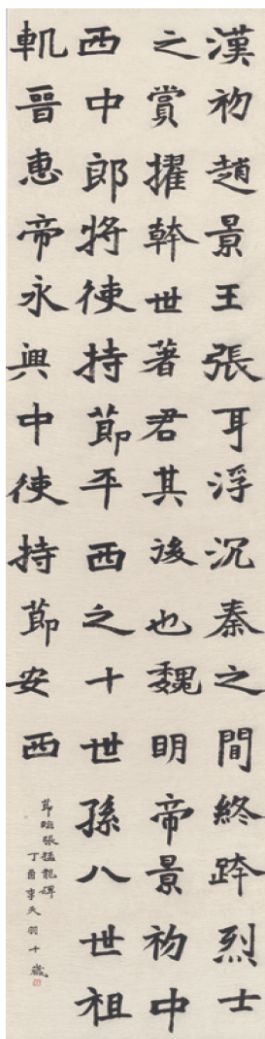 漢初趙景王張耳浮沉秦之間終跨烈士
之賞擢幹世著君其後也魏明帝景初中
西中郎將使持節平西之十世孫八世祖
軌晉惠帝永興中使持節安西
節臨張猛龍碑
丁酉李天羽十歲